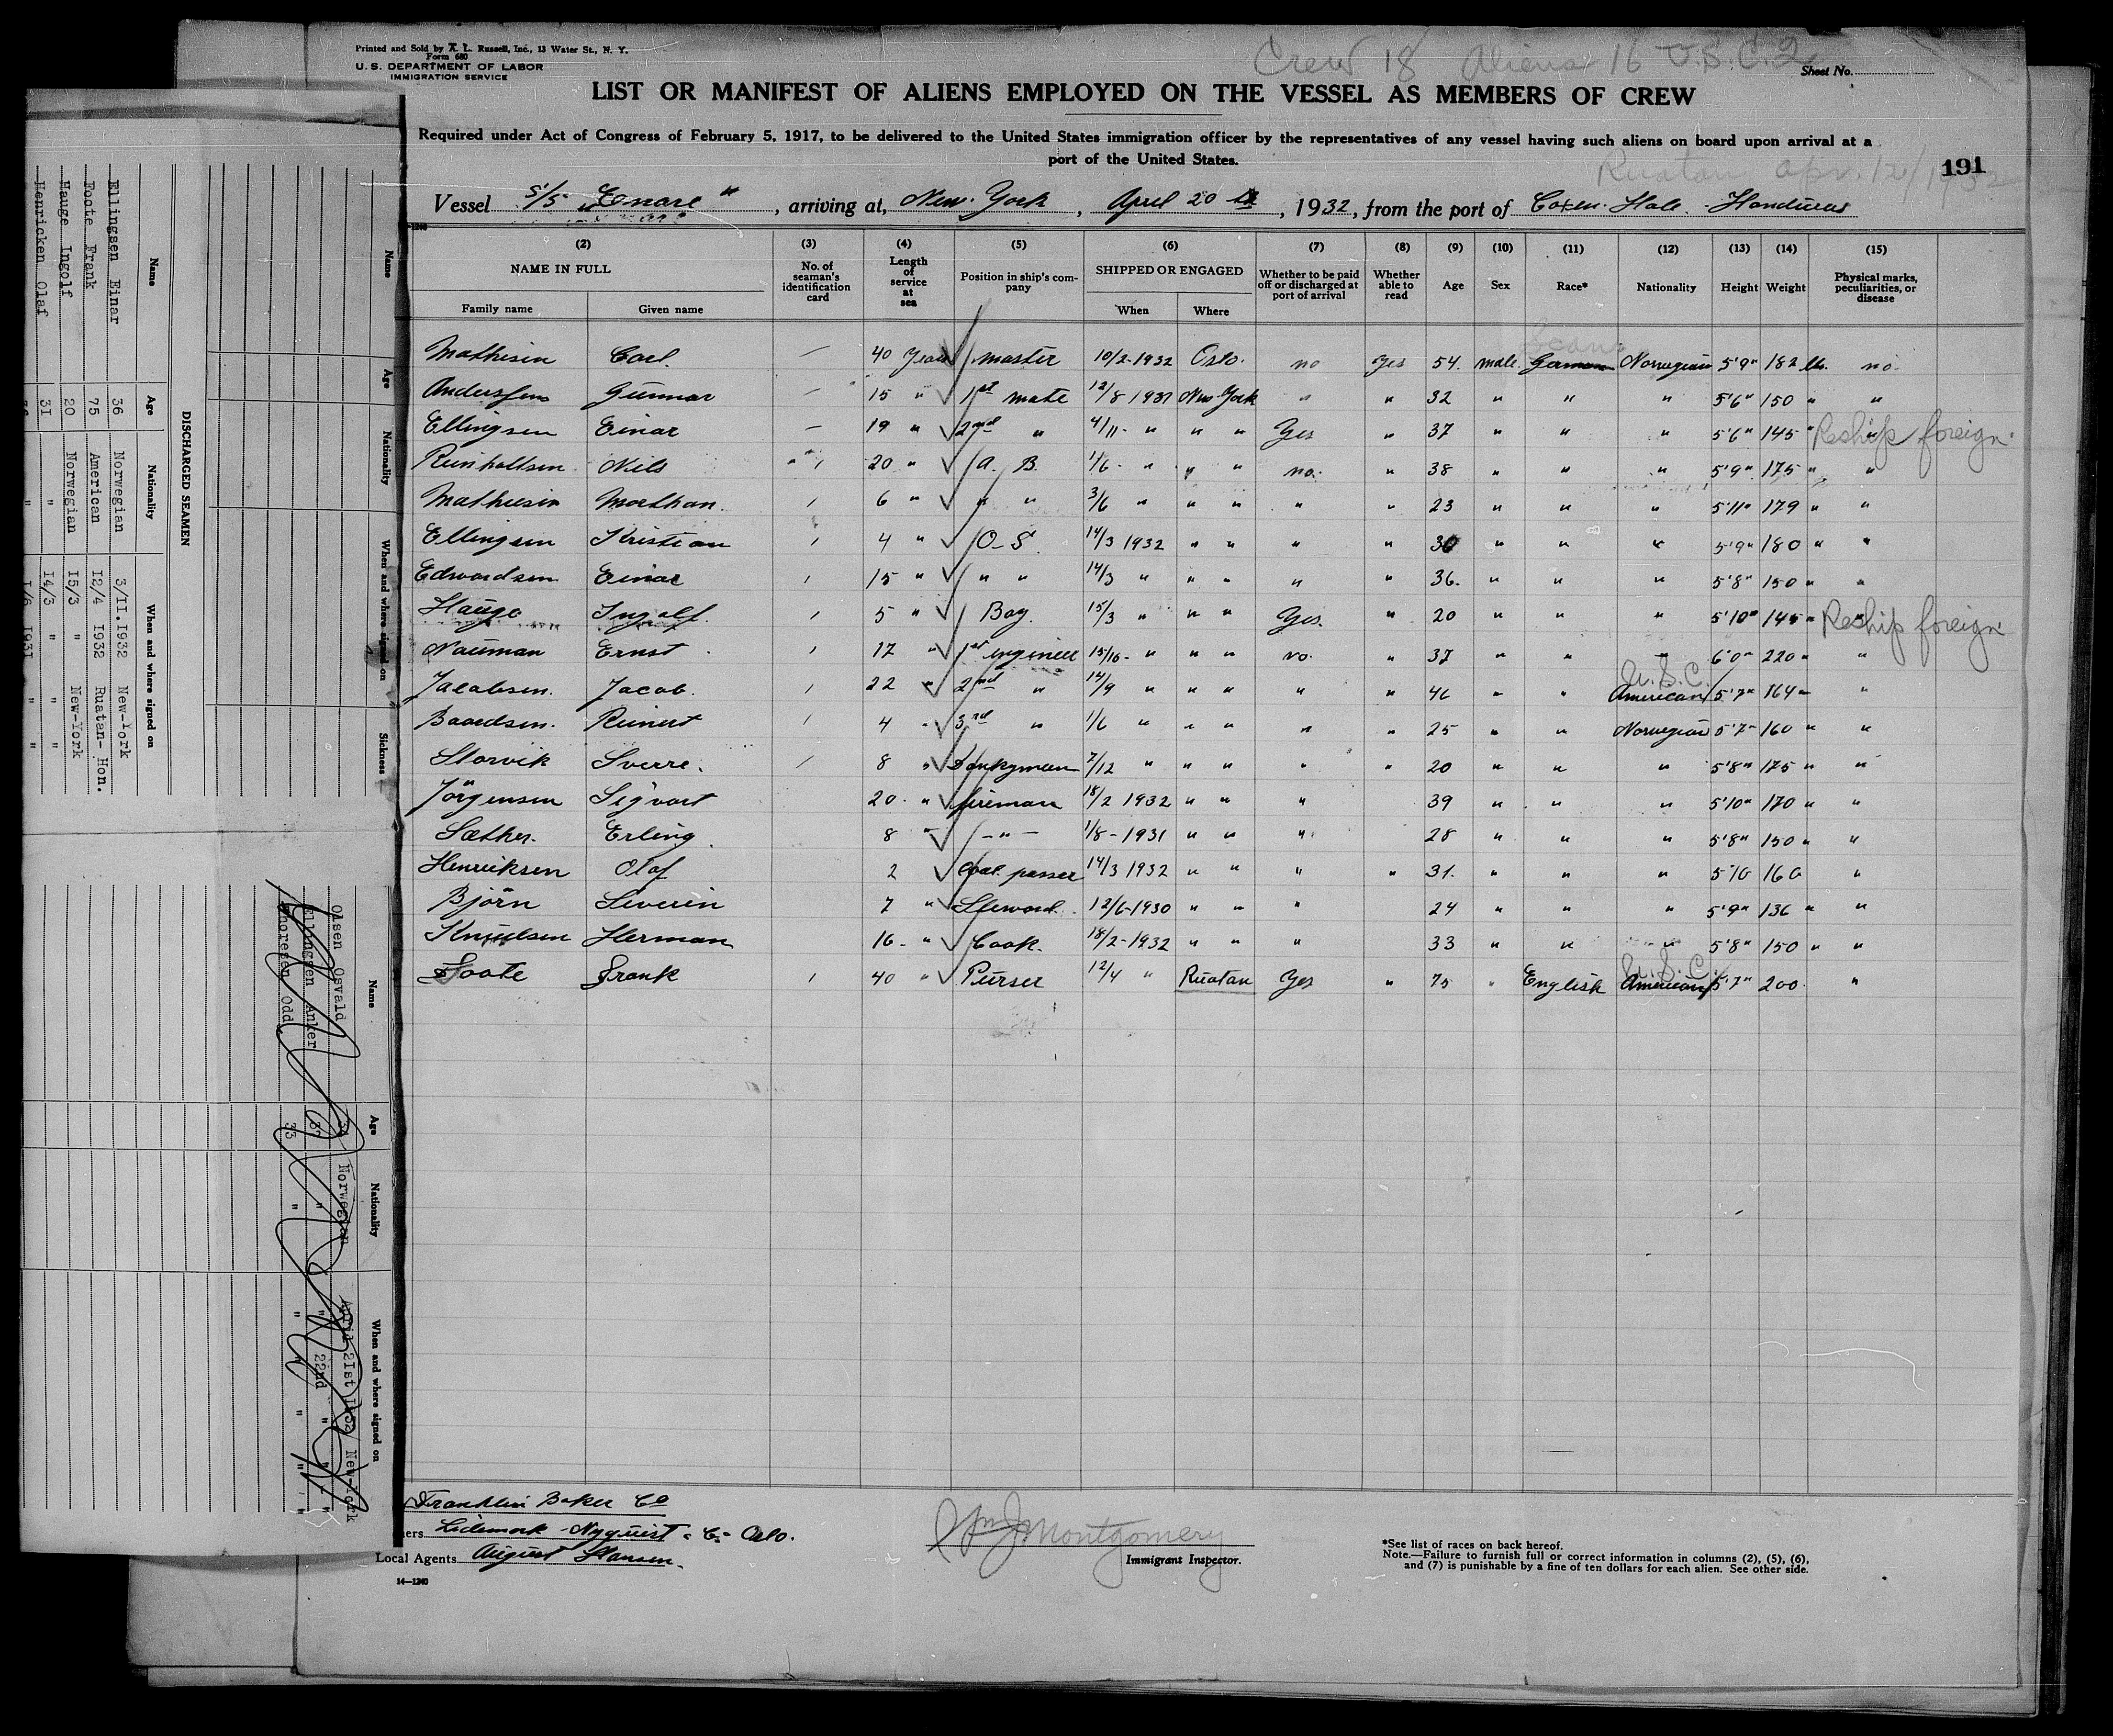 Printed and Sold by A. L. Russell, Inc., 13 Water St., N. Y.
Form 680
U. S. DEPARTMENT OF LABOR
IMMIGRATION SERVICE
Crew 18 Aliens 16 U.S.C. 2
Sheet No.
LIST OR MANIFEST OF ALIENS EMPLOYED ON THE VESSEL AS MEMBERS OF CREW
Required under Act of Congress of February 5, 1917, to be delivered to the United States immigration officer by the representatives of any vessel having such aliens on board upon arrival at a
port of the United States.
Ruatan Apr. 12/1932
191
Vessel S/S "Enare", arriving at, New York, April 20 th, 1932, from the port of Coxen Hole - Honduras
(2) (3) (4) (5) (6) (7) (8) (9) (10) (11) (12) (13) (14) (15)
NAME IN FULL No. of seaman's identification card Length of service at sea Position in ship's company SHIPPED OR ENGAGED Whether to be paid off or discharged at port of arrival Whether able to read Age Sex Race* Nationality Height Weight Physical marks, peculiarities, or disease
Family name Given name When Where
Scand
Mathisen Carl. — 40 Years Master 10/2-1932 Oslo. no Yes 54. male German Norwegian 5'9" 182 lbs. no
Anderssen Gunnar — 15 " 1st mate 12/8 1931 New York " " 32 " " " 5'6" 150 " "
Ellingsen Einar — 19 " 2nd " 4/11- " " " Yes " 37 " " " 5'6" 145 " Reship foreign
Reinholtsen Nils 20 " A. B. 1/6- " " " no. " 38 " " " 5'9" 175 " "
Mathiesen Morthan 6 " " " 3/6 " " " " " 23 " " " 5'11" 179 " "
Ellingsen Kristian 4 " O-S. 14/3 1932 " " " " 30 " " " 5'9" 180 " "
Edwardsen Einar 15 " " " 14/3 " " " " " 36. " " " 5'8" 150 " "
Hauge Ingolf. 5 " Boy. 15/3 " " " Yes. " 20 " " " 5'10" 145 " Reship foreign
Nauman Ernst 17 " 1st engineer 15/10- " " " no. " 37 " " " 6'0" 220 " "
U.S.C.
Jacobsen. Jacob. 22 " 2nd " 14/9 " " " " " 46 " " American 5'7" 164 " "
Baardsen. Reinert 4 " 3rd " 1/6 " " " " " 25 " " Norwegian 5'7" 160 " "
Storvik Sverre. 8 " Donkeyman 7/12 " " " " " 20 " " " 5'8" 175 " "
Jörgensen Sigvart 20. " fireman 18/2 1932 " " " 39 " " " 5'10" 170 " "
Sæther. Erling 8 " — " — 1/8-1931 " " " 28 " " " 5'8" 150 " "
Henriksen Olaf 2 Coal passer 14/3 1932 " " " " 31. " " " 5'10 160 "
Björn Severin 7 " Steward. 12/6-1930 " " " 24 " " " 5'9" 136 " "
Knutsen Herman 16- " Cook. 18/2-1932 " " " 33 " " " 5'8" 150 " "
U.S.C.
Foote Frank 40 " Purser 12/4 " Ruatan Yes " 75 " English American 5'7" 200 "
Franklin Baker Co
ners Lidemark - Nyquist & Co - Oslo.
Local Agents August Hansen.
14—1240
Wm J Montgomery
Immigrant Inspector.
*See list of races on back hereof.
Note.—Failure to furnish full or correct information in columns (2), (5), (6),
and (7) is punishable by a fine of ten dollars for each alien. See other side.
Name Age Nationality When and where signed on Sickness
DISCHARGED SEAMEN
Name Age Nationality When and where signed on
Ellingsen Einar 36 Norwegian 3/II.1932 New-York
Foote Frank 75 American I2/4 I932 Ruatan-Hon.
Hauge Ingolf 20 Norwegian I5/3 " New-York
Henricken Olaf 3I " I4/3 " "
I/6 I931 "
Name Age Nationality When and where signed on
Olsen Osvald Norwegian April 21st 1932 New-York
Ellingsen Anker " " 22nd " "
Thoresen Odd 33 " " " "